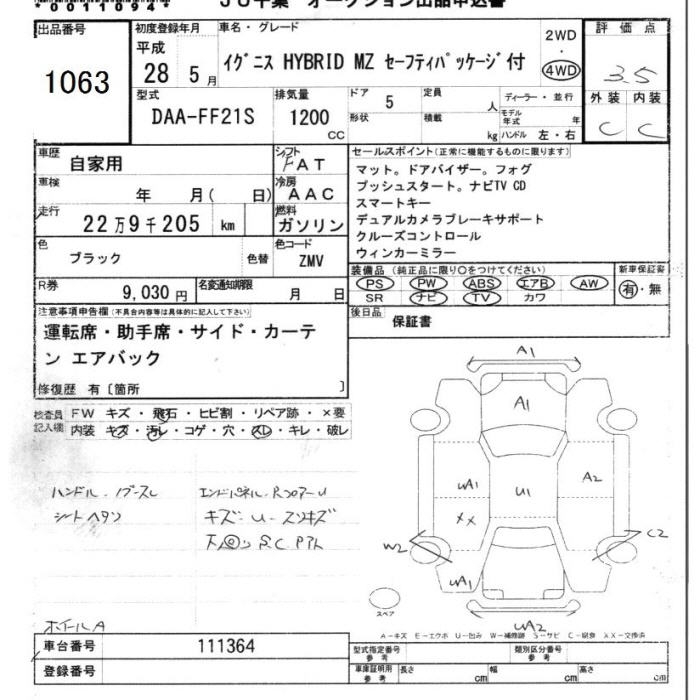 *0011094*
JU千葉 オークション出品申込書
出品番号
1063
初度登録年月
平成
28年 5月
車名・グレード
イグニス HYBRID MZ セーフティパッケージ付
2WD
・
4WD
評価点
3.5
外装 内装
C C
型式
DAA-FF21S
排気量
1200
CC
ドア 5
形状
定員 人
積載 kg
ディーラー・並行
モデル年式 年
ハンドル 左・右
車歴
自家用
シフト
FAT
車検
年 月( 日)
冷房
AAC
走行
22万9千205 km
燃料
ガソリン
色
ブラック
色替
色コード
ZMV
R券
9,030円
名変通知期限
月 日
セールスポイント(正常に機能するものに限ります)
マット。ドアバイザー。フォグ
プッシュスタート。ナビTV CD
スマートキー
デュアルカメラブレーキサポート
クルーズコントロール
ウィンカーミラー
装備品(純正品に限り○をつけてください)
PS PW ABS エアB AW
SR ナビ TV カワ
新車保証書
有・無
後日品
保証書
注意事項申告欄(不具合内容等は具体的に記入して下さい)
運転席・助手席・サイド・カーテ
ン エアバック
修復歴 有〔箇所 〕
検査員
記入欄
FW キズ・飛石・ヒビ割・リペア跡・×要
内装 キズ・汚レ・コゲ・穴・スレ・キレ・破レ
ハンドル・ノブースレ
シートヘタリ
エンドパネル・Rフロアーu
キズ・u・スリキズ
S.C.
ホイールA
A1
A1
uA1
U1
A2
XX
W2
C2
uA1
uA2
スペア
A-キズ E-エクボ U-凹み W-補修跡 S-サビ C-腐食 XX-交換済
車台番号
111364
登録番号
型式指定番号
参考
類別区分番号
参考
車庫証明用
参考
長さ cm
幅 cm
高さ cm